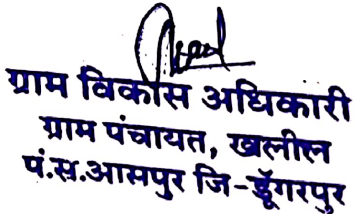 ग्राम विकास अधिकारी
ग्राम पंचायत, खलील
पं.स.आसपुर जि-डूँगरपुर